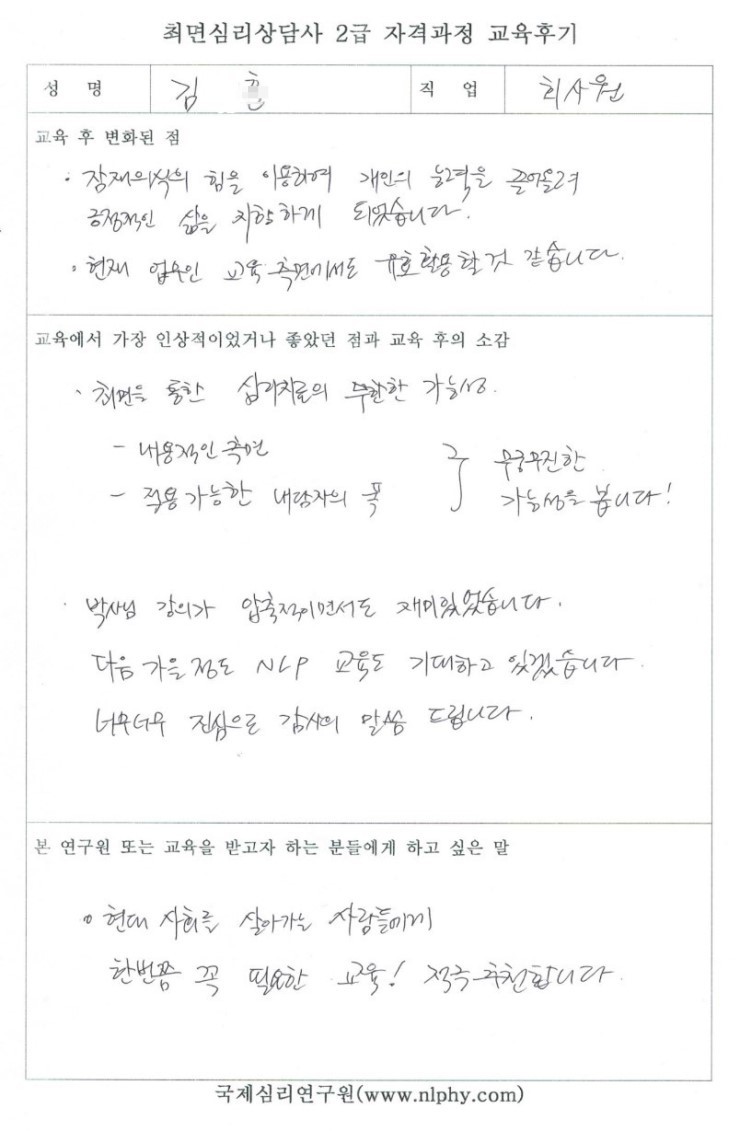 최면심리상담사 2급 자격과정 교육후기
성 명 김 훈 직 업 회사원
교육 후 변화된 점
· 잠재의식의 힘을 이용하여 개인의 능력을 끌어올려
긍정적인 삶을 지향하게 되었습니다.
· 현재 업무인 교육 측면에서도 유효활용할 것 같습니다.
교육에서 가장 인상적이었거나 좋았던 점과 교육 후의 소감
· 최면을 통한 심리치료의 무한한 가능성.
- 내용적인 측면
- 적용가능한 내담자의 폭
} 무궁무진한
가능성을 봅니다!
· 박사님 강의가 압축적이면서도 재미있었습니다.
다음 가을 정도 NLP 교육도 기대하고 있겠습니다.
너무너무 진심으로 감사의 말씀 드립니다.
본 연구원 또는 교육을 받고자 하는 분들에게 하고 싶은 말
· 현대 사회를 살아가는 사람들에게
한번쯤 꼭 필요한 교육! 적극 추천합니다.
국제심리연구원(www.nlphy.com)